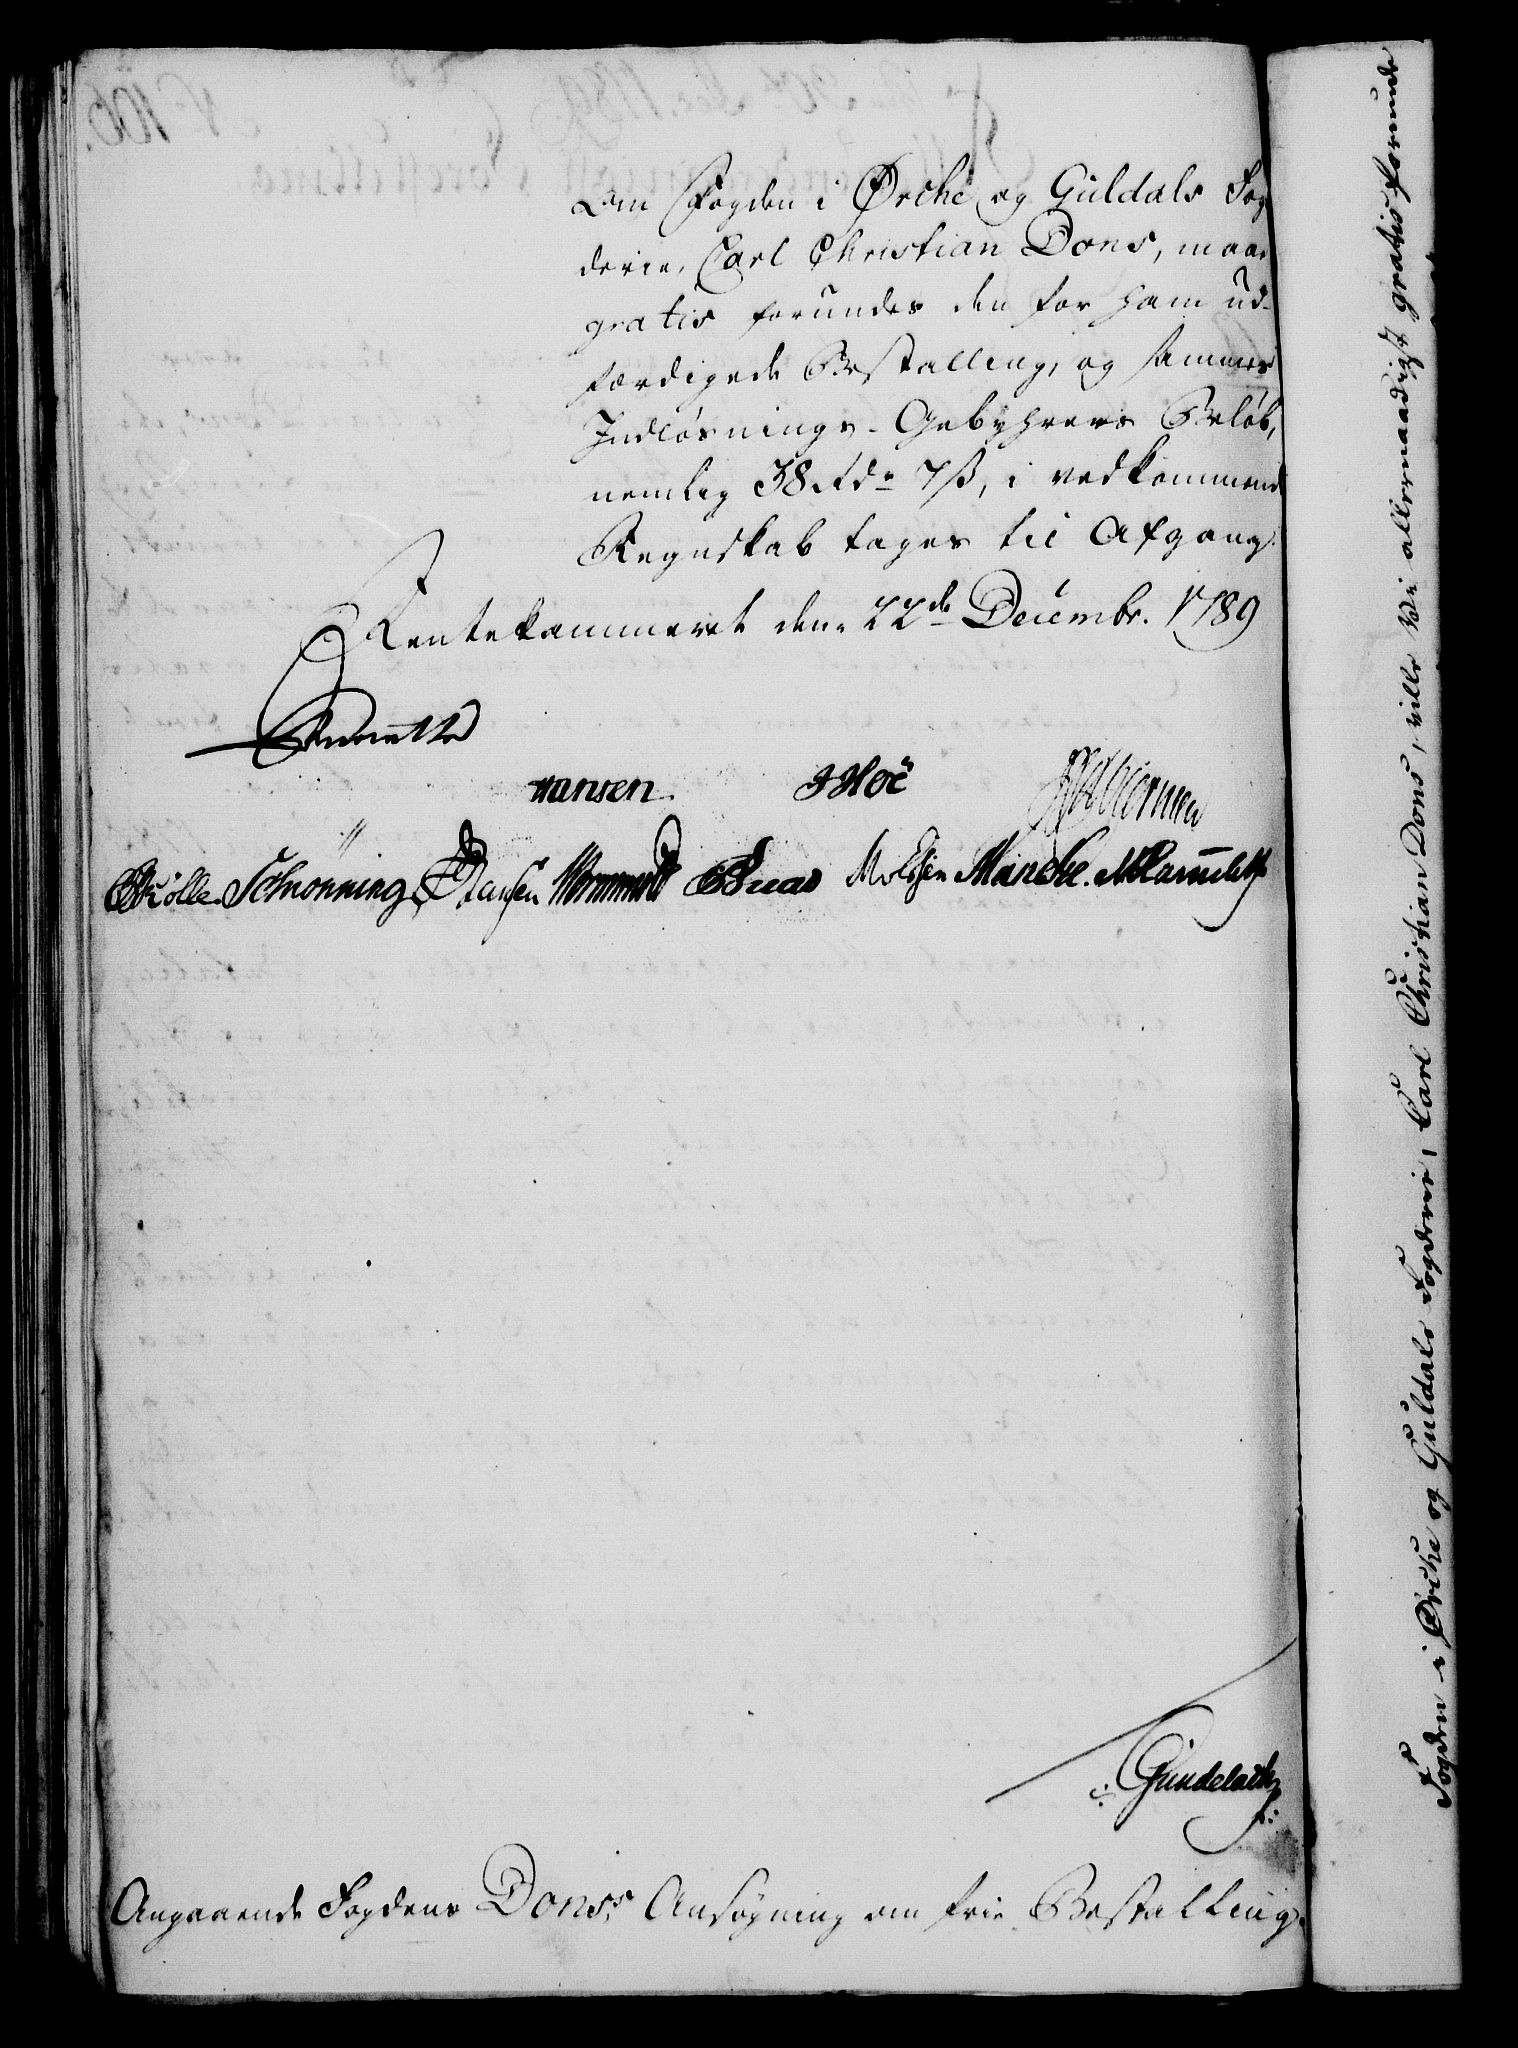 Om Fogden i Ørche og Guldals Fog
derie, Carl Christian Dons, maae
gratis forundes den for ham ud-
færdigede Bestalling, og sammes
Indløsnings-Gebyhrers Beløb,
nemlig 38 Rdr 7 ß, i vedkommende
Regnskab tages til Afgang.
Rentekammeret den 22de Decembr. 1789
Hansen. Hoë
Schiønning Hansen Wormskiold Manche.
Gundelach
Angaaende Fogdens Dons's Ansøgning om frie Bestalling.
Fogden i Ørche og Guldals Fogderie, Carl Christian Dons, ville Vi allernaadigst gratis forunde